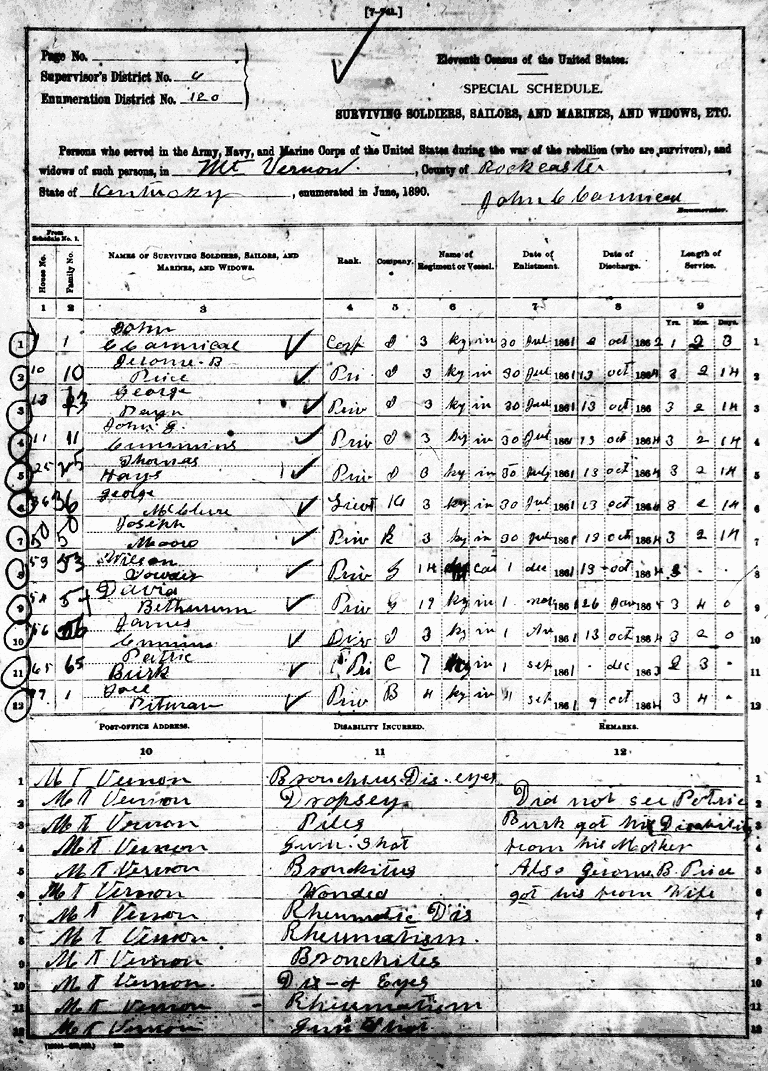 Page No.
Supervisor's District No. 4
Enumeration District No. 120
Eleventh Census of the United States.
SPECIAL SCHEDULE.
SURVIVING SOLDIERS, SAILORS, AND MARINES, AND WIDOWS, ETC.
Persons who served in the Army, Navy, and Marine Corps of the United States during the war of the rebellion (who are survivors), and
widows of such persons, in Mt Vernon, County of Rockcastle,
State of Kentucky, enumerated in June, 1890.
John C Carmical
Enumerator.
From Schedule No. 1.
House No. Family No. NAMES OF SURVIVING SOLDIERS, SAILORS, AND MARINES, AND WIDOWS. Rank. Company. Name of Regiment or Vessel. Date of Enlistment. Date of Discharge. Length of Service.
1 2 3 4 5 6 7 8 9
Yrs. Mos. Days.
1 1 John
C Carmical Corp I 3 ky in 30 Jul 1861 2 oct 1862 1 2 3 1
2 10 10 Jerome B
Price Pri I 3 ky in 30 Jul 1861 13 oct 1864 3 2 14 2
3 13 13 George
Priv I 3 ky in 30 Jul 1861 13 oct 186 3 2 14 3
4 11 11 John G.
Cummins Priv I 3 ky in 30 Jul 1861 13 oct 1864 3 2 14 4
5 25 25 Thomas
Hays Priv I 3 ky in 30 July 1861 13 oct 1864 3 2 14 5
6 36 36 George
McClure K 3 ky in 30 Jul 1861 13 oct 1864 3 2 14 6
7 50 50 Joseph
Moore Priv K 3 ky in 30 Jul 1861 13 oct 1864 3 2 14 7
8 53 53 Wilson
Priv G 14 cal 1 dec 1861 13 oct 186 3 - 8
9 54 54 David
Bethurum Priv G 19 ky in 1 nov 1861 26 Jan 186 3 4 0 9
10 56 56 James
Priv I 3 ky in 1 1861 13 oct 1864 3 2 0 10
11 65 65 Patric
Burk Pri C 7 ky in 1 sep 1861 - dec 1863 2 3 - 11
12 1 Joel
Pitman Priv B 4 ky in 1 sep 1861 9 oct 1864 3 4 - 12
POST-OFFICE ADDRESS. DISABILITY INCURRED. REMARKS.
10 11 12
1 M T Vernon Dis. eyes 1
2 M T Vernon Dropsey Did not see Patric 2
3 M T Vernon Piles Burk got his Disability 3
4 M T Vernon Gun Shot from his Mother 4
5 M T Vernon Bronkitus Also Jerome B. Price 5
6 M T Vernon Wonded got his from Wife 6
7 M T Vernon Rheumatic Dis 7
8 M T Vernon Rheumatism. 8
9 M T Vernon Bronchites 9
10 M T Vernon Dis - of Eyes 10
11 M T Vernon - Rheumatism 11
12 M T Vernon Gun Shot 12